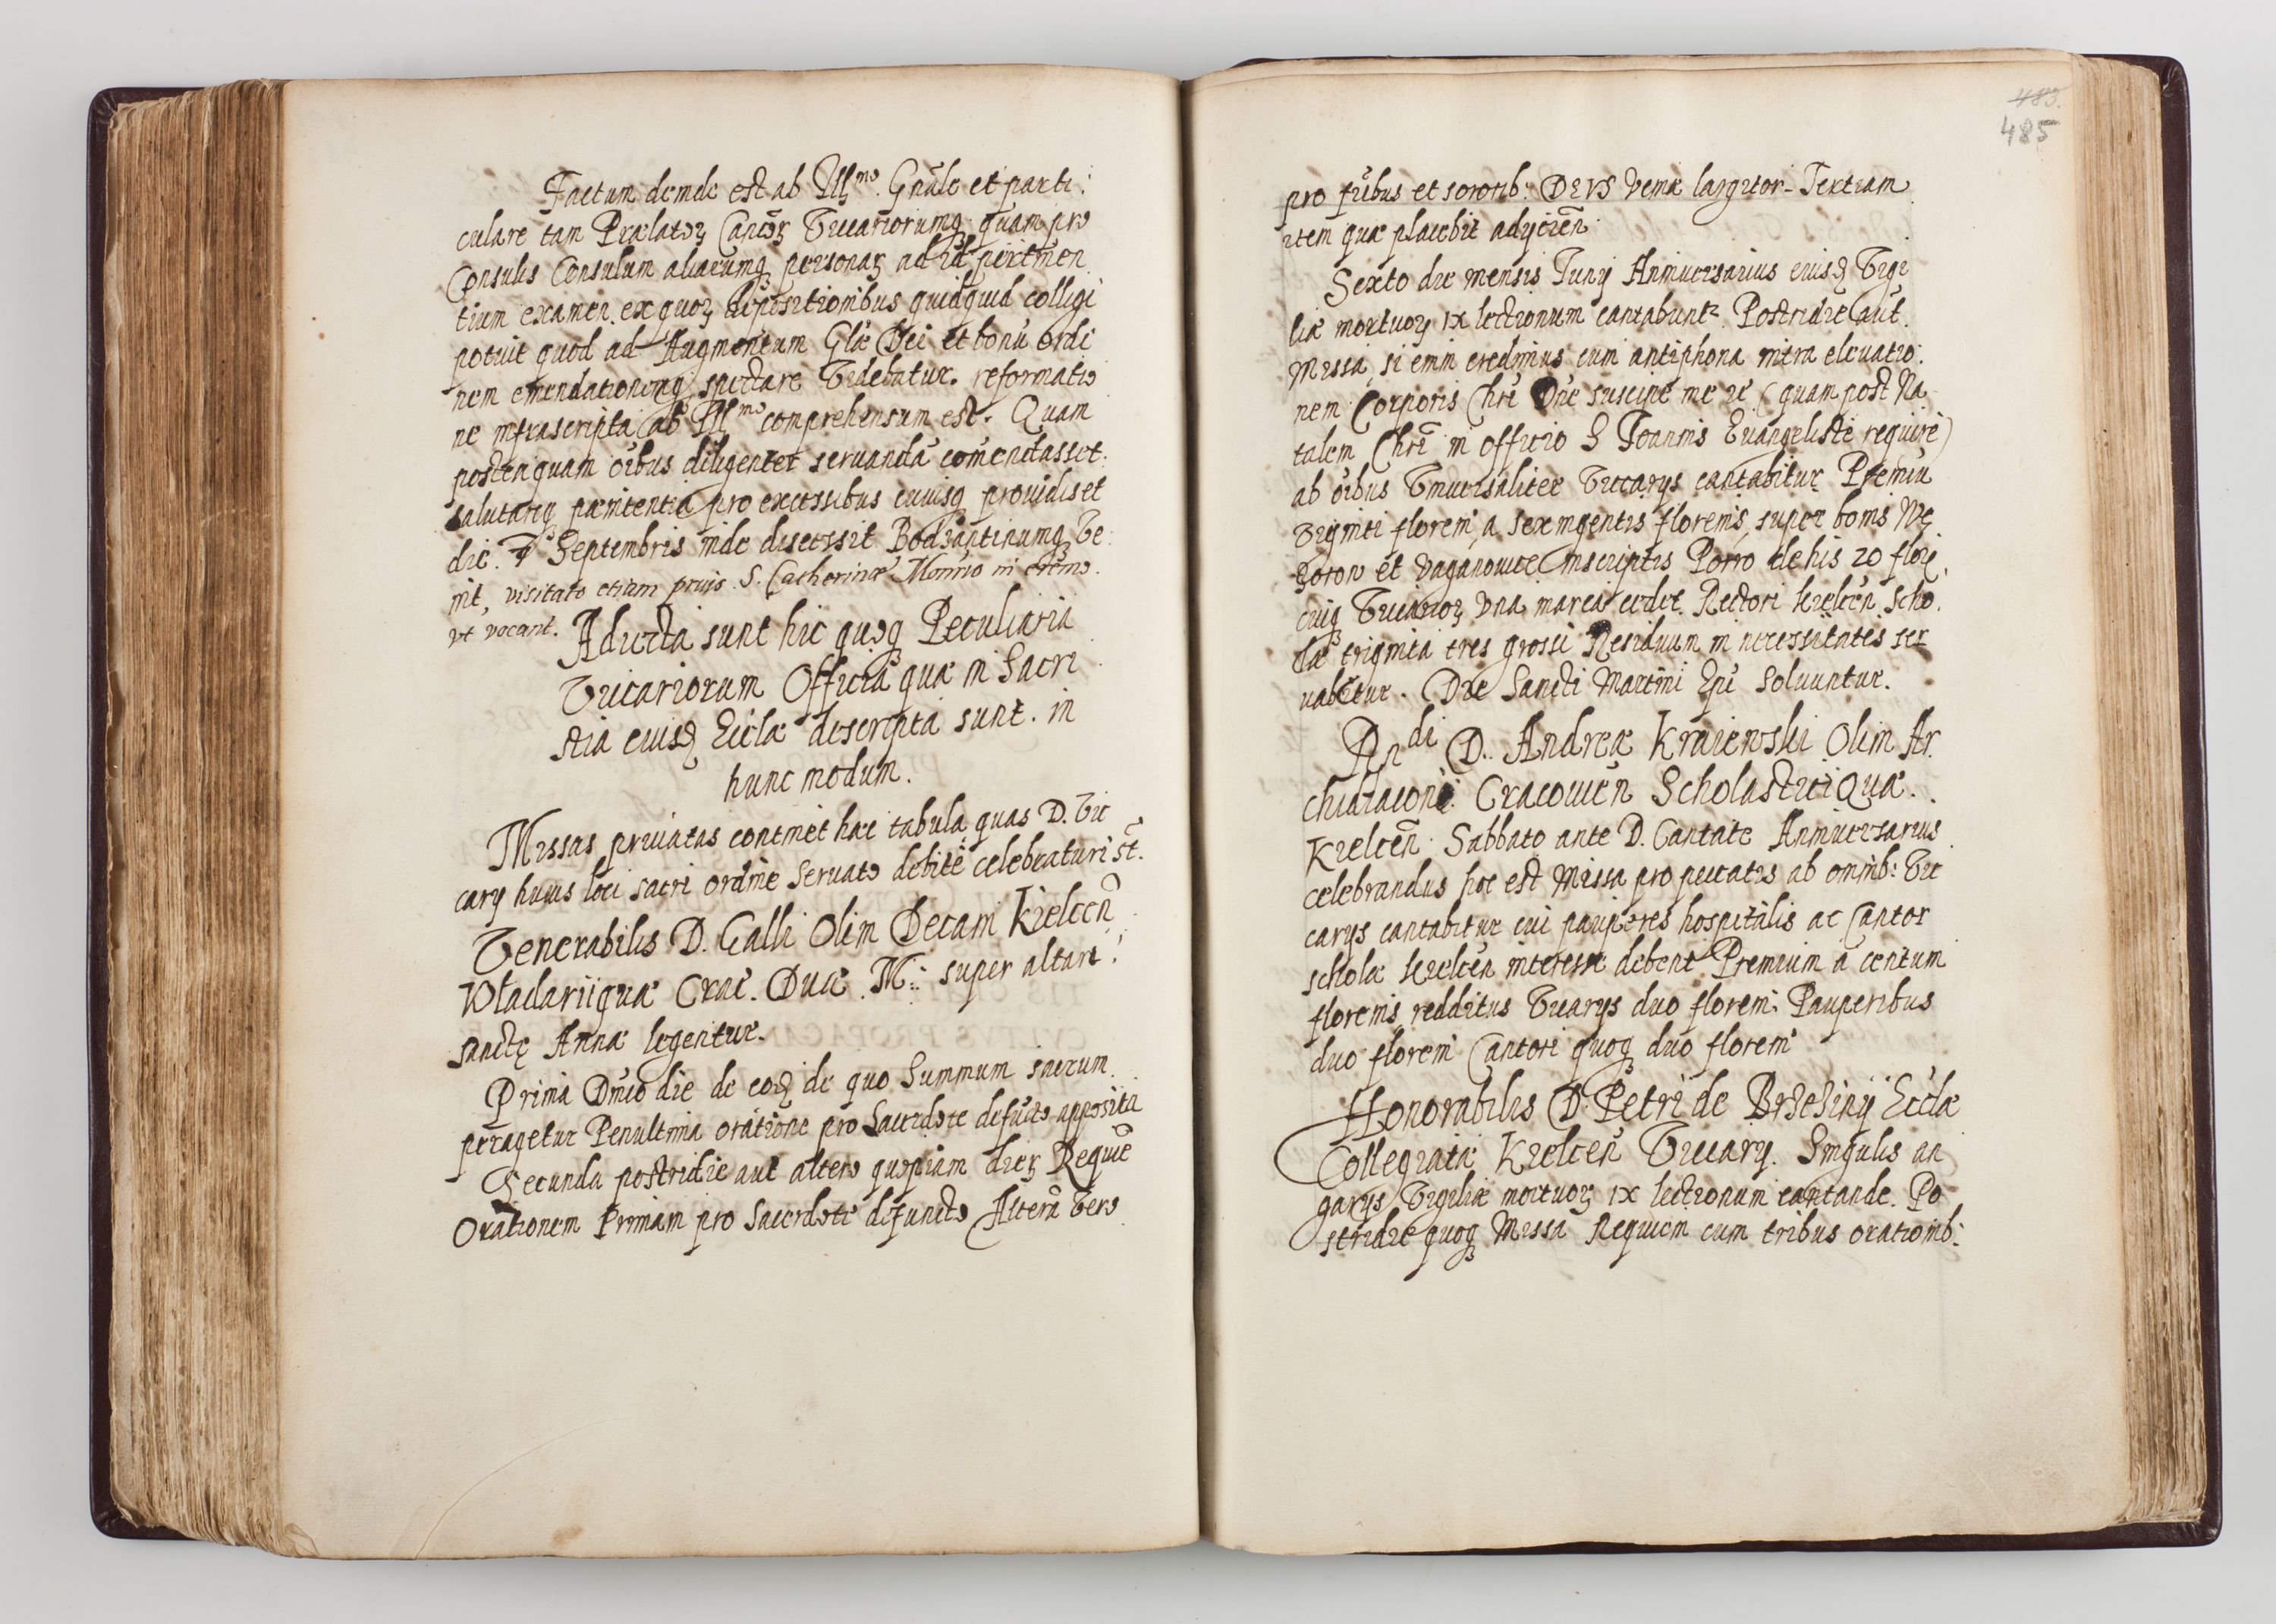 Factum deinde est ab Illmo. Gnãle et parti:
culare tam Prælatoꝝ Canõꝝ Vicariorumꝗ quam pro
Consulis Consulum aliarumꝗ personaꝝ ad id pertinen
tium examen ex quoꝝ depositionibus quidquid colligi
potuit quod ad Augmentum Glæ Dei et bonũ ordi
nem emendationemꝗ spectare videbatur. reformatio
ne infrascripta ab Illmo comprehensum est. Quam
posteaquam oĩbus diligenter servandã comendasset.
salutariꝗ pænitentia pro excessibus cuiusꝗ providisset
die. 7 Septembris inde discessit Bodzantinumꝗ Ve:
nit, visitato etiam prius S. Catherinæ Monrio in eremo.
vt vocant.
Adiecta sunt hic quoꝗ Peculiaria
Vicariorum Officia quæ in Sacri
stia eiusd Eccłæ descripta sunt. in
hunc modum.
Missas privatas continet hæc tabula quas D. Vic
carij huius loci sacri ordine servato debite celebraturi st̃.
Venerabilis D. Galli Olim Decani Kielceñ
Władariiquæ Crac. Duæ. M: super altari
sanctę Annæ legentur.
Prima Dnĩo die de eod de quo Summum sacrum
peragetur Penultima oratione pro Sacerdote defũcto apposita
Secunda postridie aut altero quopiam dieꝝ Requiẽ
Orationem Primam pro Sacerdote defuncto Alterã Vero
483.
485
pro fribus et sororib: DEVS veniæ largitor. Tertiam
item quæ placebit adijcieñ.
Sexto die mensis Junij Anniversarius eiusd Vigi
liæ mortuoꝝ IX lectionum cantabunt. Postridie aut.
Missa, si enim credimus cum antiphona intra elevatio:
nem Corporis Chri Dñe suscipe me &c (quam post Na
talem Chri in officio S Joannis Evangelistæ require)
ab oĩbus Vniversaliter Vicarijs cantabitur Premiũ
viginti floreni, a sexingentis florenis, super bonis Wę
et vaganowice inscriptis Porro de his 20 flor.
cuiꝗ Vicarioꝝ vna marca cedet. Rectori kielceñ scho
læ triginta tres grossi Residuum in necessitates ser
vabitur. Die Sancti Martini Epi Solvuntur.
Rndi D. Andreæ Kraiewski Olim Ar
chidiaconi Cracovieñ Scholastici Quæ.
Kielceñ Sabbato ante D. Cantate Anniversarius
celebrandus hoc est Missa pro peccatis ab omnib: Vic
carijs cantabitur cui pauperes hospitalis ac Cantor
scholæ kielceñ interesse debent Premium a centum
florenis redditus Vicarijs duo floreni: Pauperibus
duo floreni Cantori quoꝗ duo floreni
Honorabilis D. Petri de Brzeziny Eccłæ
Collegiatæ Kielceñ Vicarij. Singulis an
garijs Vigiliæ mortuoꝝ IX lectionum cantande. Po
stridie quoꝗ Missa Requiem cum tribus orationib: